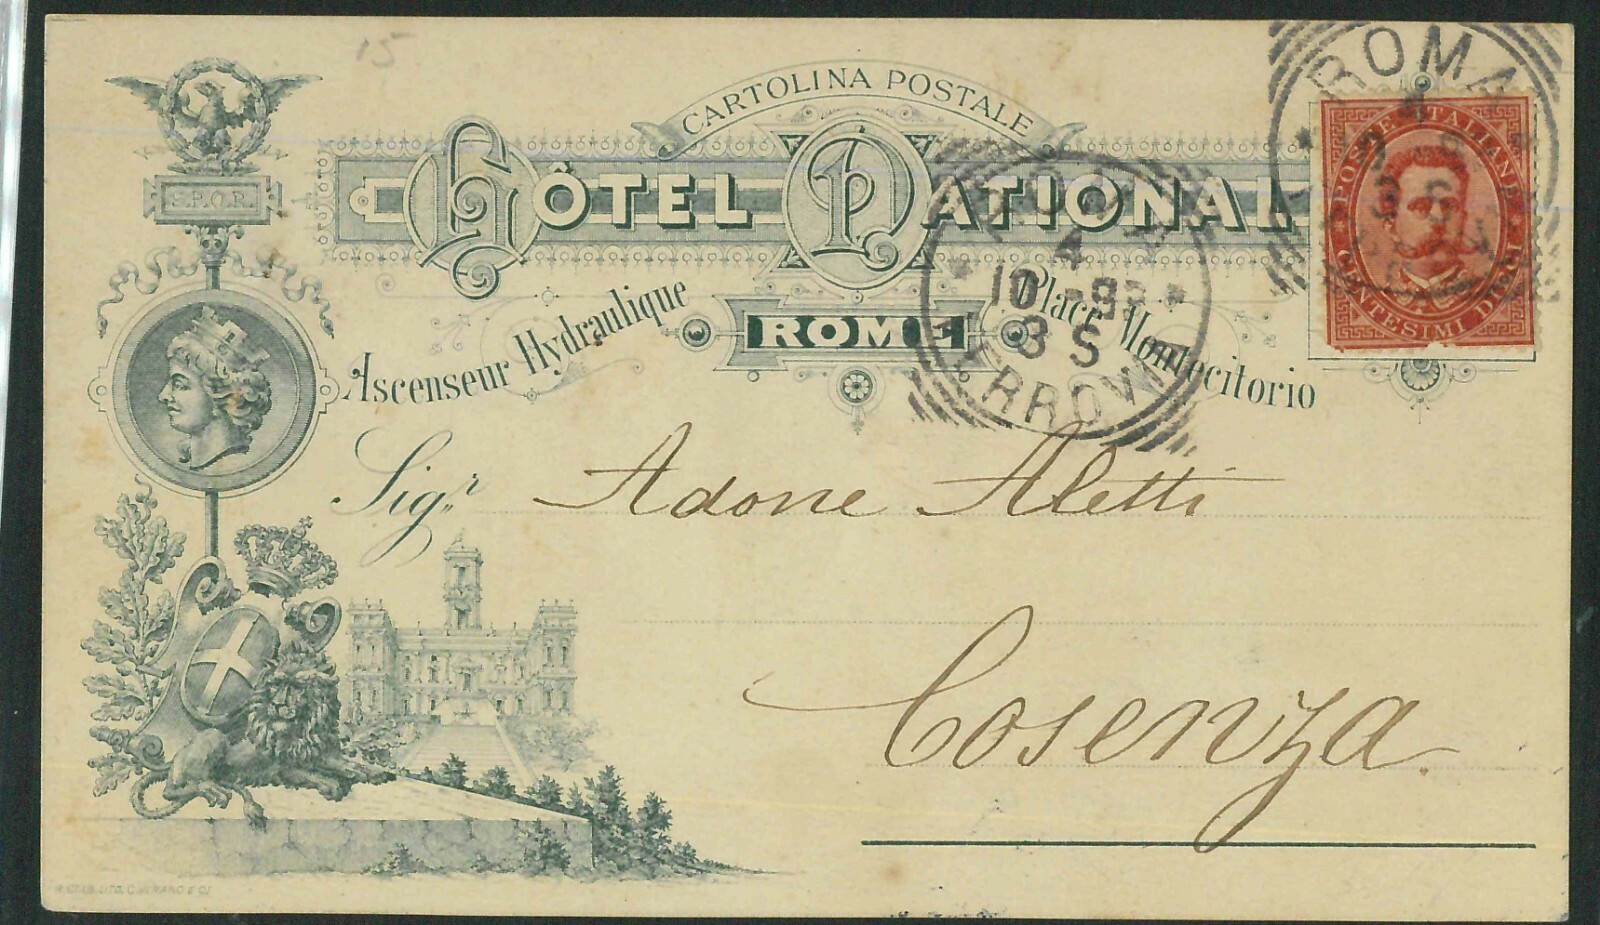 15
CARTOLINA POSTALE
HÔTEL NATIONAL
S.P.Q.R.
ROME
Ascenseur Hydraulique
Place Montecitorio
ROMA
4
10 - 9
8 S
FERROVIA
ROMA
POSTE ITALIANE
CENTESIMI DIECI
Sigr. Adone Aletti
Cosenza